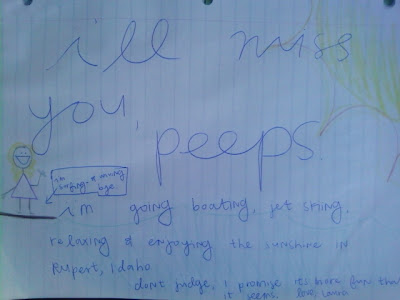 ill miss
you,
peeps.
im
saying & waving
bye.
im going boating, jet skiing,
relaxing & enjoying the sunshine in
Rupert, Idaho
dont judge, I promise its more fun than
it seems. love, Laura